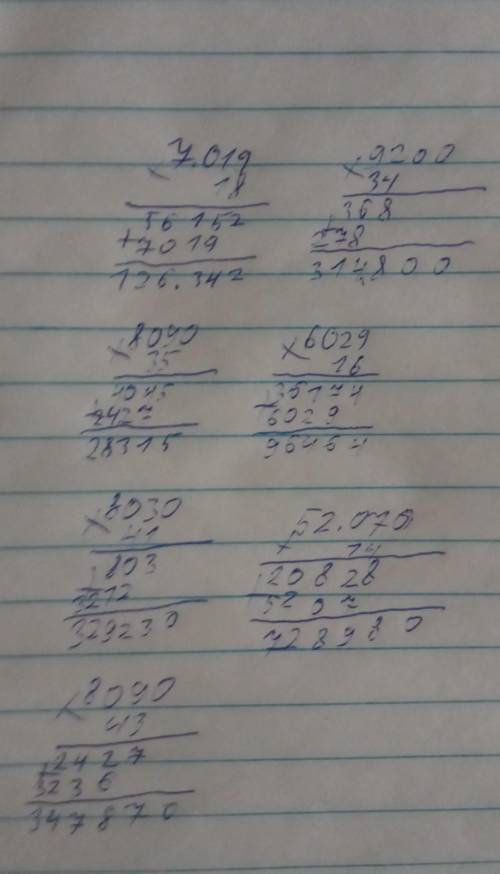 7.019
× 18
56152
+ 7019
126.342
× 9200
34
368
+ 278
314800
× 8090
35
4045
+ 2427
28315
× 6029
16
36174
+ 6029
96464
× 8030
41
803
+ 3212
329230
× 52.070
14
20828
+ 5207
728980
× 8090
43
2427
+ 3236
347870